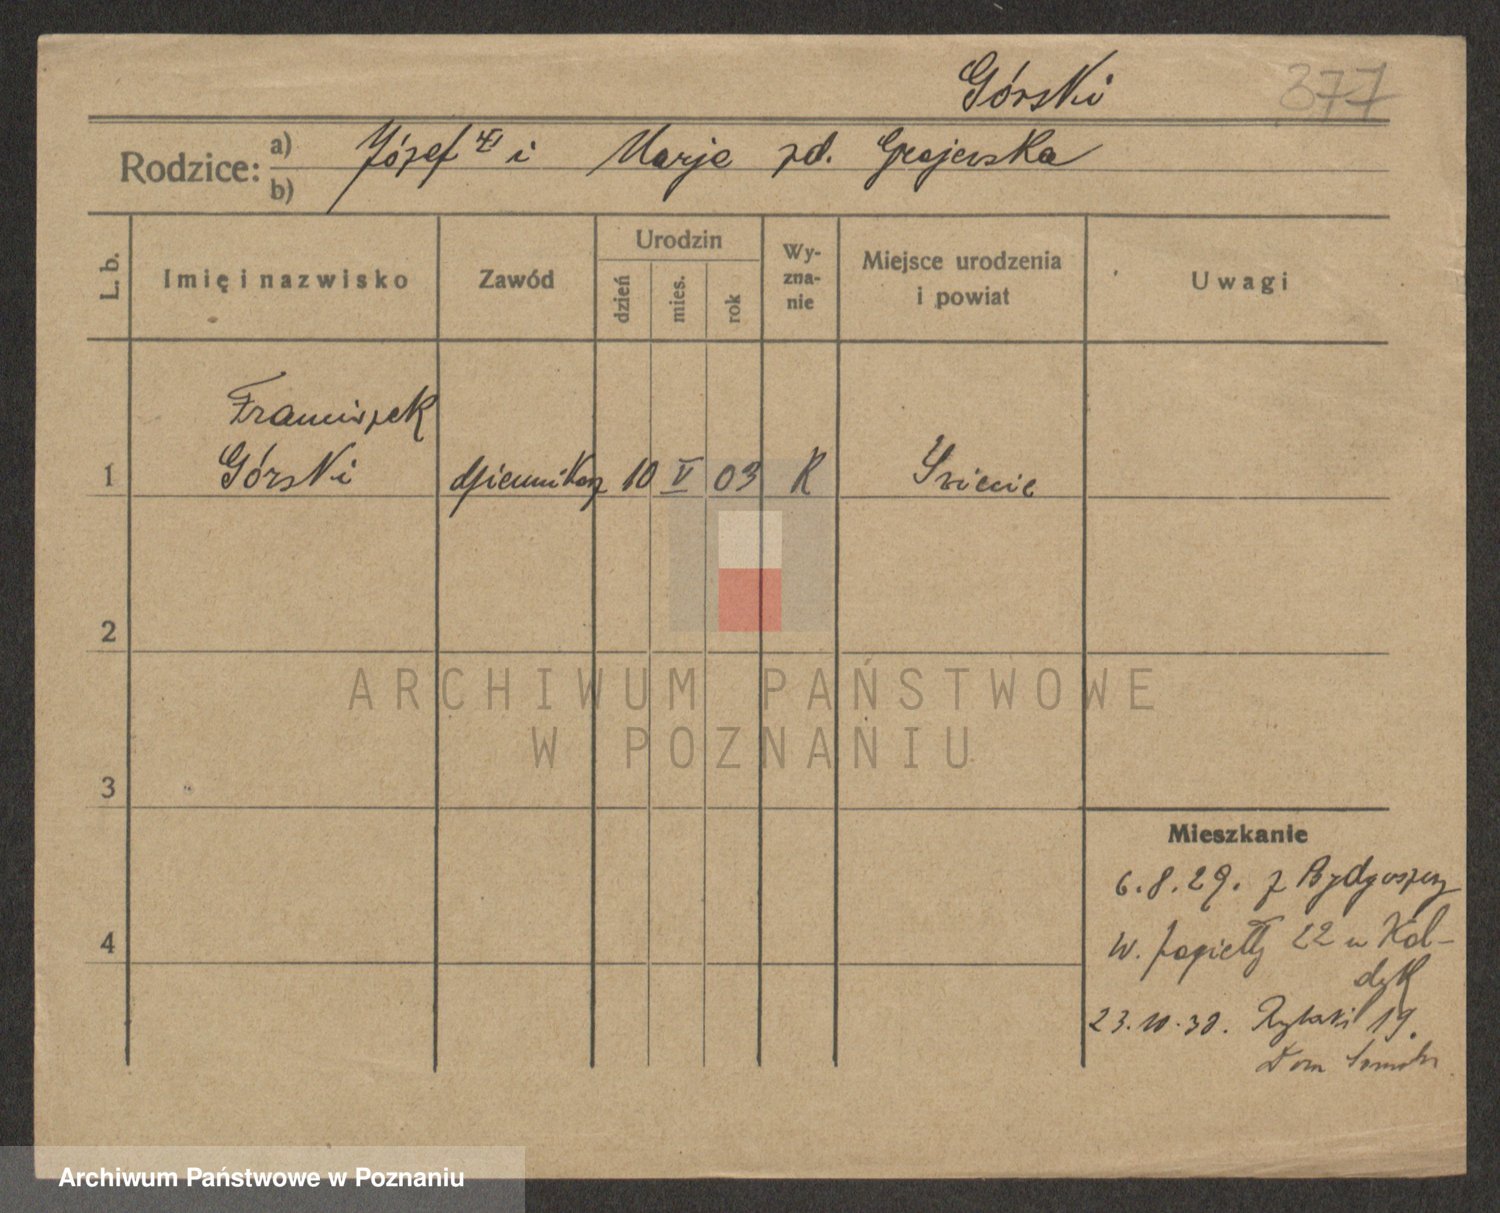 Górski
377
Rodzice:
a) Józef i Marja zd. Grajewska
b)
L. b.
Imię i nazwisko
Zawód
Urodzin
dzień
mies.
rok
Wy-
zna-
nie
Miejsce urodzenia
i powiat
Uwagi
Franciszek
1 Górski dziennikarz 10 V 03 K
2
3
4
Mieszkanie
6.8.29. z Bydgoszczy
W. Jagiełły 22 u Kol-
23.10.30. Rybaki 19.
Dom
ARCHIWUM PAŃSTWOWE
W POZNANIU
Archiwum Państwowe w Poznaniu